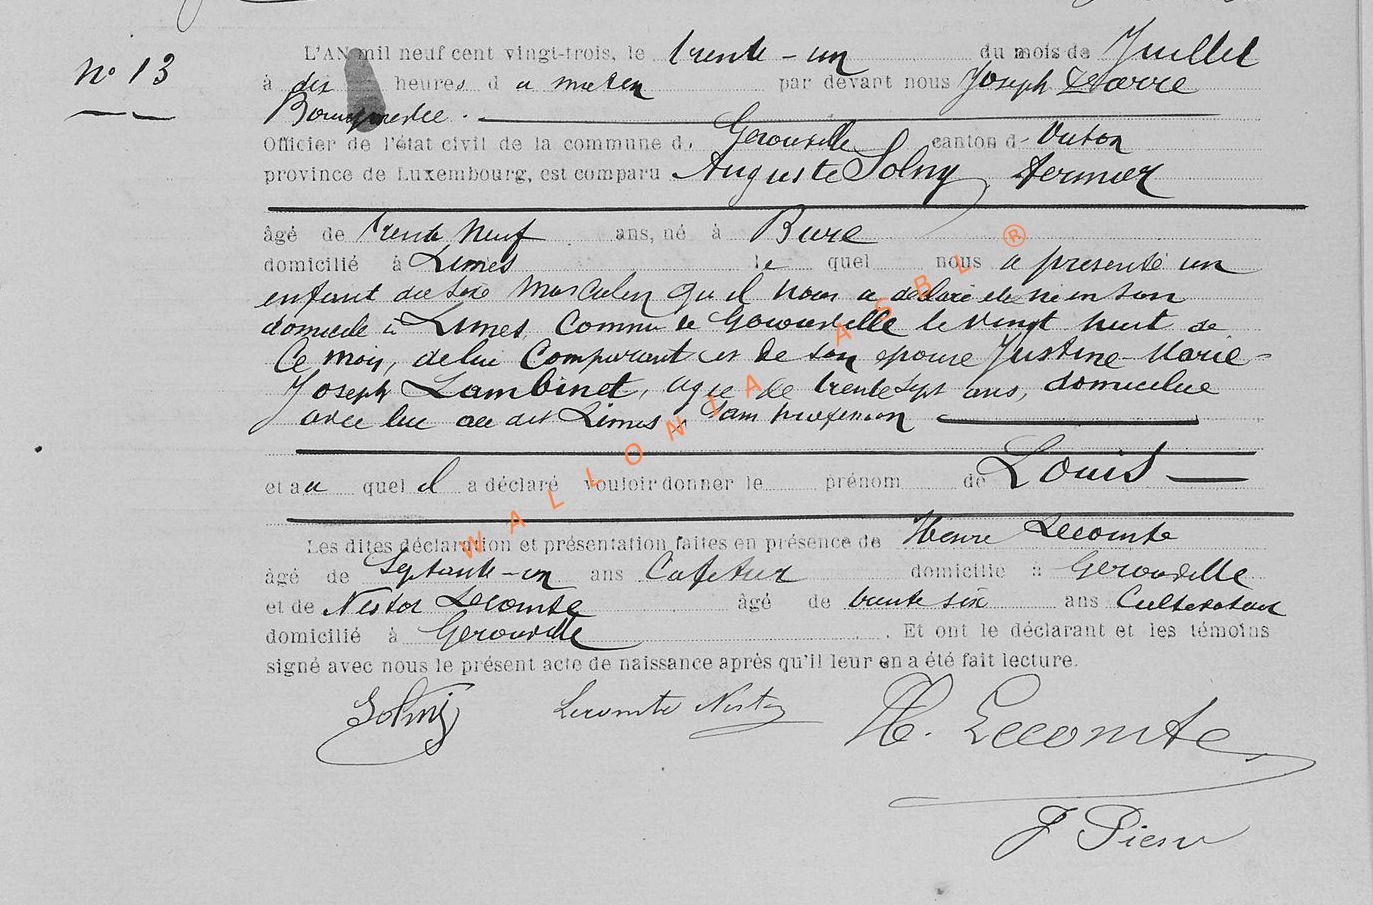 N° 13
L'AN mil neuf cent vingt-trois, le trente-un du mois de Juillet
à dix heures du matin par devant nous Joseph
Bourgmestre.
Officier de l'état civil de la commune de Gérouville canton de Virton
province de Luxembourg, est comparu Auguste Solny, fermier
âgé de trente neuf ans, né à Bure
domicilié à Limes le quel nous a présenté un
enfant du sexe masculin qu'il nous a déclaré être né en son
domicile à Limes, Commune de Gérouville le vingt huit de
ce mois, de lui Comparant et de son épouse Justine-Marie-
Joseph Lambinet, âgée de trente sept ans, domiciliée
avec lui au dit Limes, sans profession
et au quel il a déclaré vouloir donner le prénom de Louis
Les dites déclaration et présentation faites en présence de Henri Lecomte
âgé de Septante-un ans Cafetier domicilié à Gérouville
et de Nestor Lecomte âgé de trente six ans Cultivateur
domicilié à Gérouville. Et ont le déclarant et les témoins
signé avec nous le présent acte de naissance après qu'il leur en a été fait lecture.
Solny Lecomte Nestor H. Lecomte
WALLONIA ASBL ®